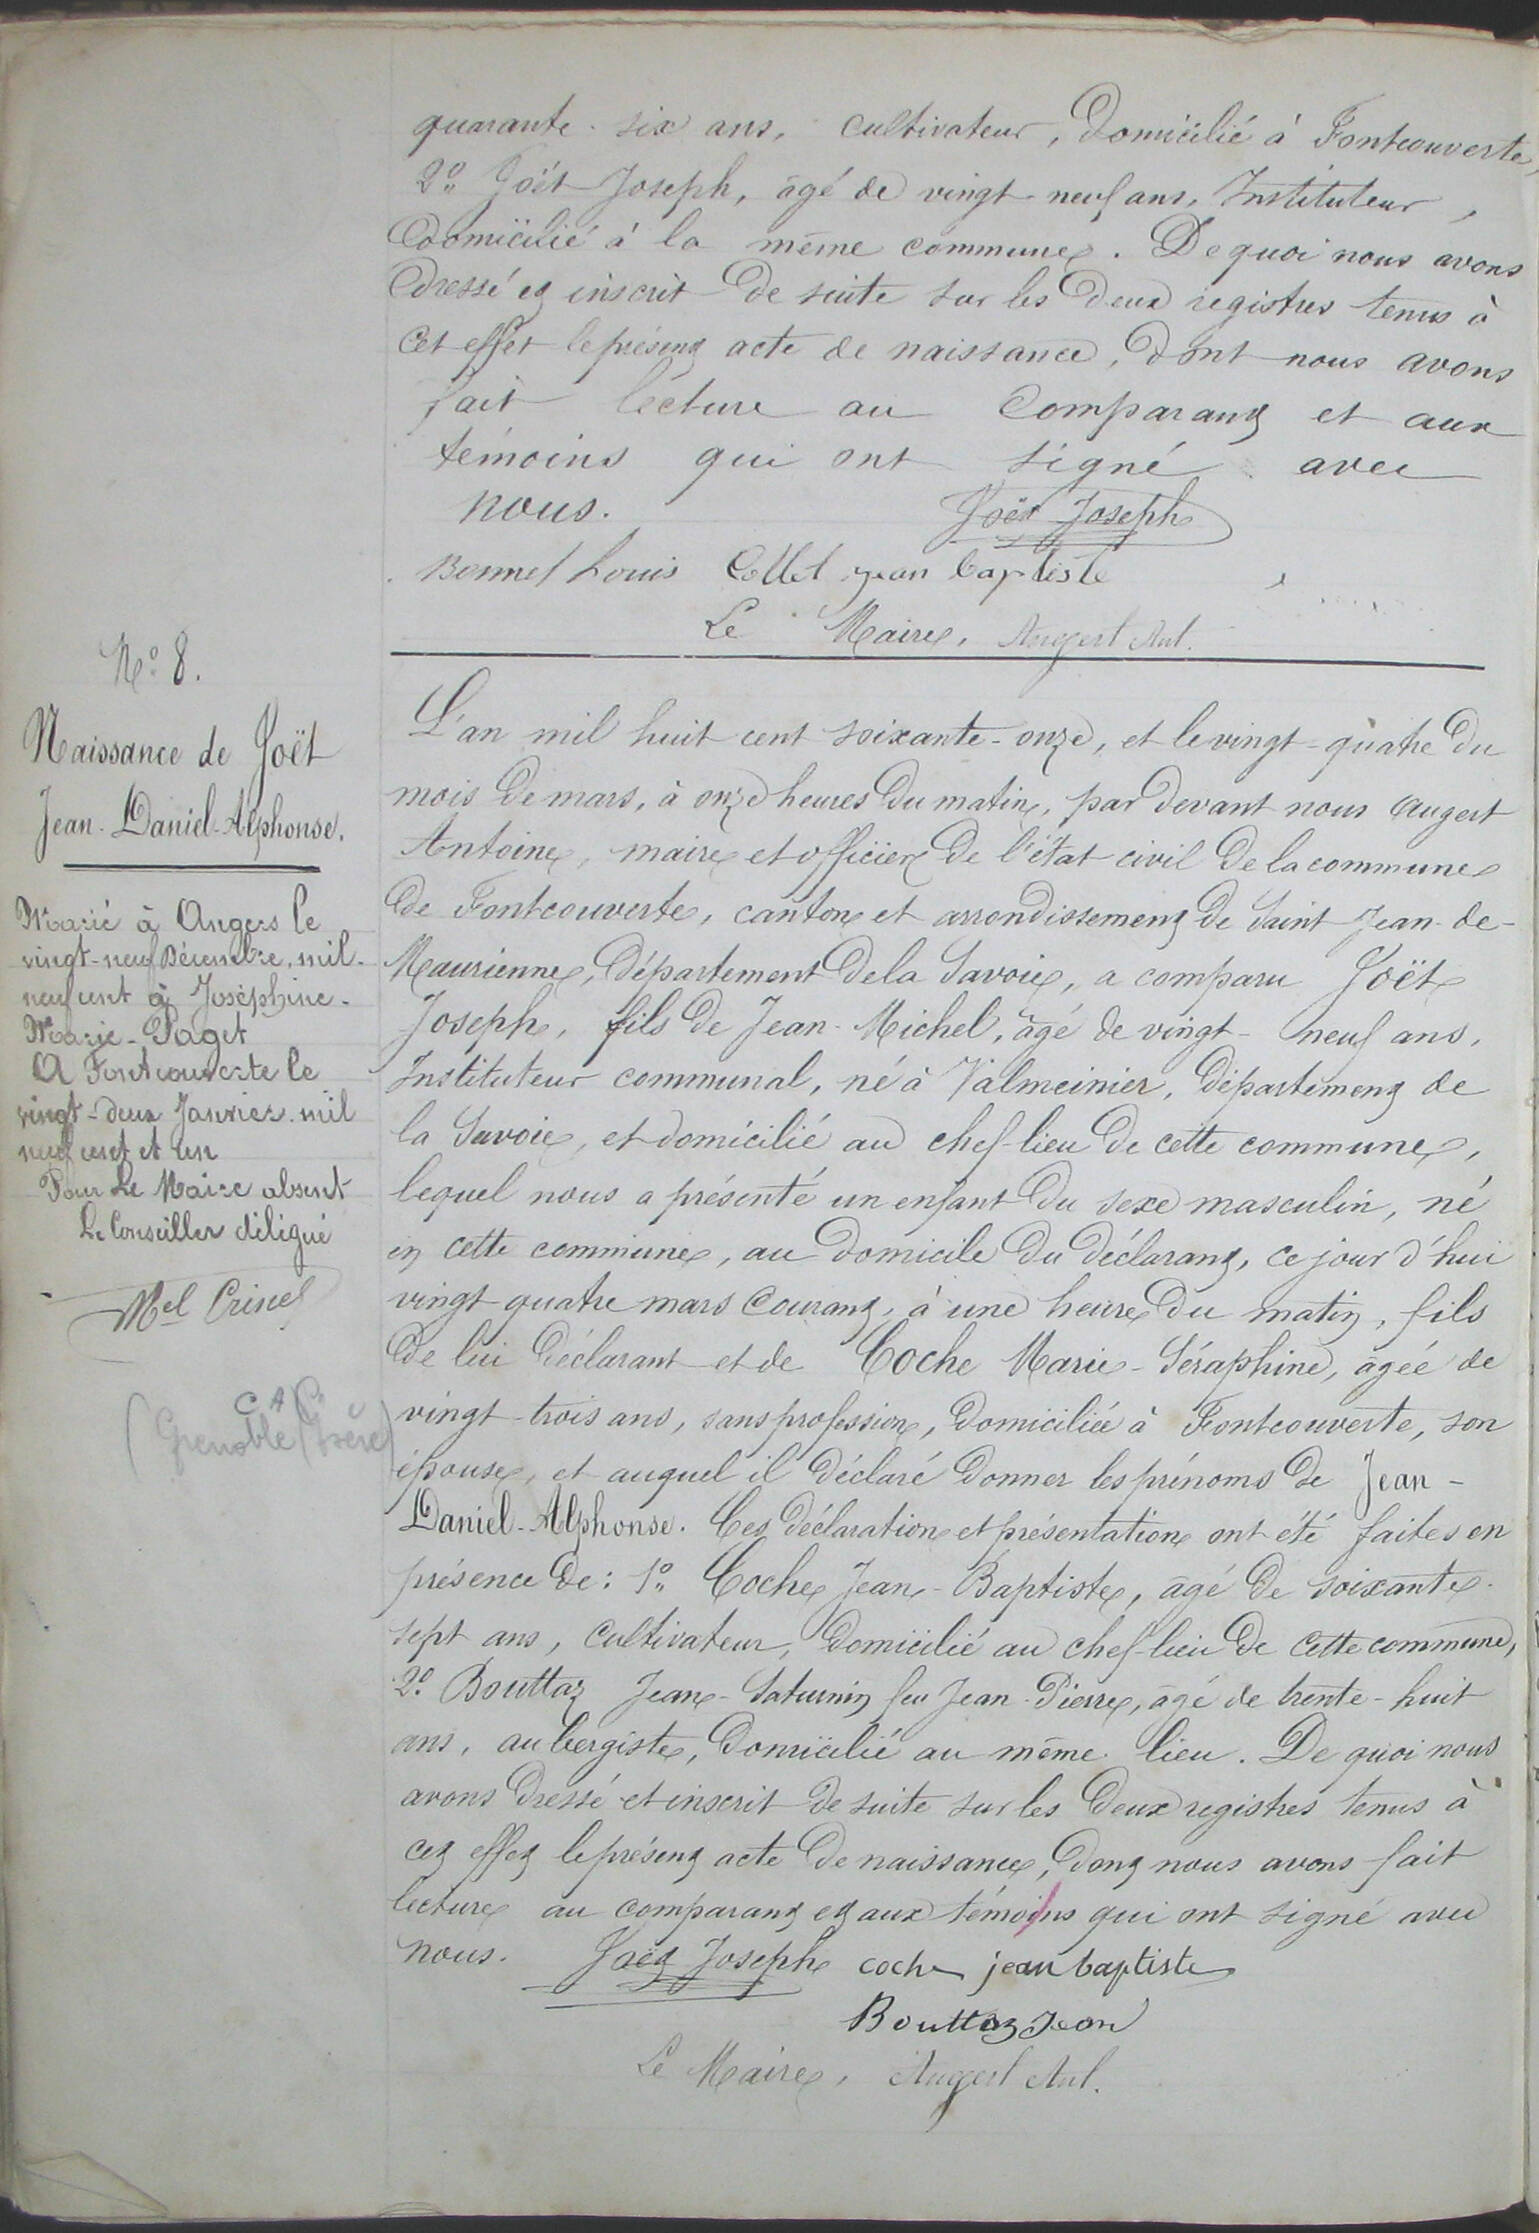 quarante-six ans, cultivateur, domicilié à Fontcouverte,
2° Joët Joseph, âgé de vingt-neuf ans, Instituteur,
domicilié à la même commune. De quoi nous avons
dressé et inscrit de suite sur les deux registres tenus à
cet effet le présent acte de naissance, dont nous avons
fait lecture au comparant et aux
témoins qui ont signé avec
nous. Joët Joseph
Bonnel Louis Collet jean baptiste
Le Maire, Augert Ant.
N° 8.
Naissance de Joët
Jean-Daniel-Alphonse.
Marié à Angers le
vingt-neuf Décembre mil-
neuf cent à Joséphine-
Marie-Paget
A Fontcouverte le
vingt-deux Janvier mil
neuf cent et un
Pour Le Maire absent
Le Conseiller délégué
(Grenoble Isère)
L'an mil huit cent soixante-onze, et le vingt-quatre du
mois de mars, à onze heures du matin, par devant nous Augert
Antoine, maire et officier de l'état civil de la commune
de Fontcouverte, canton et arrondissement de Saint Jean-de-
Maurienne, département de la Savoie, a comparu Joët
Joseph, fils de Jean-Michel, âgé de vingt-neuf ans,
Instituteur communal, né à Valmeinier, département de
la Savoie, et domicilié au chef-lieu de cette commune,
lequel nous a présenté un enfant du sexe masculin, né
en cette commune, au domicile du déclarant, ce jour d'hui
vingt quatre mars courant, à une heure du matin, fils
de lui déclarant et de Coche Marie-Séraphine, âgée de
vingt-trois ans, sans profession, domiciliée à Fontcouverte, son
épouse, et auquel il déclaré donner les prénoms de Jean-
Daniel-Alphonse. Ces déclaration et présentation ont été faites en
présence de: 1° Coche Jean-Baptiste, âgé de soixante-
sept ans, cultivateur, domicilié au chef-lieu de cette commune,
2° Bouttaz Jean-Saturnin feu Jean-Pierre, âgé de trente-huit
ans, aubergiste, domicilié au même lieu. De quoi nous
avons dressé et inscrit de suite sur les deux registres tenus à
cet effet le présent acte de naissance, dont nous avons fait
lecture au comparant et aux témoins qui ont signé avec
nous. Joët Joseph coche jean baptiste
Bouttaz Jean
Le Maire, Augert Ant.